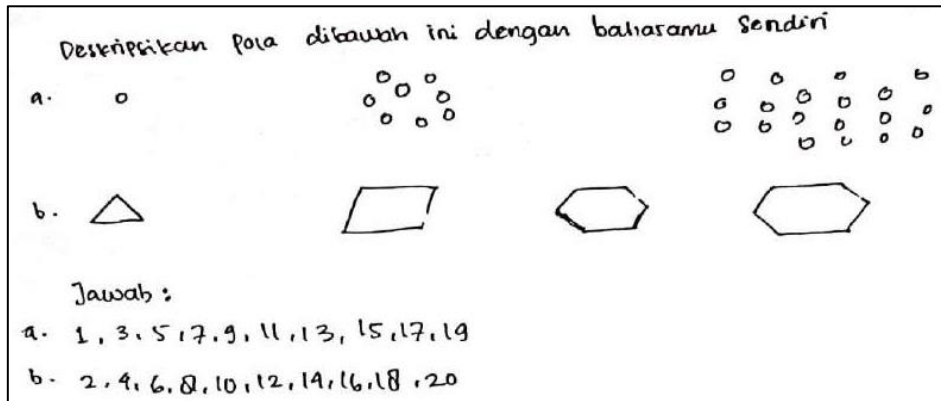 Deskripsikan pola dibawah ini dengan bahasamu sendiri
a.
b.
Jawab :
a. 1, 3, 5, 7, 9, 11, 13, 15, 17, 19
b. 2, 4, 6, 8, 10, 12, 14, 16, 18, 20